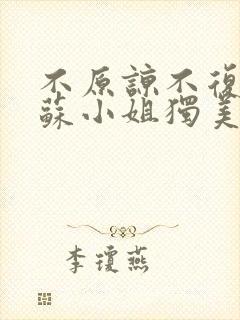 不原諒不復
蘇小姐獨美
李瓊燕